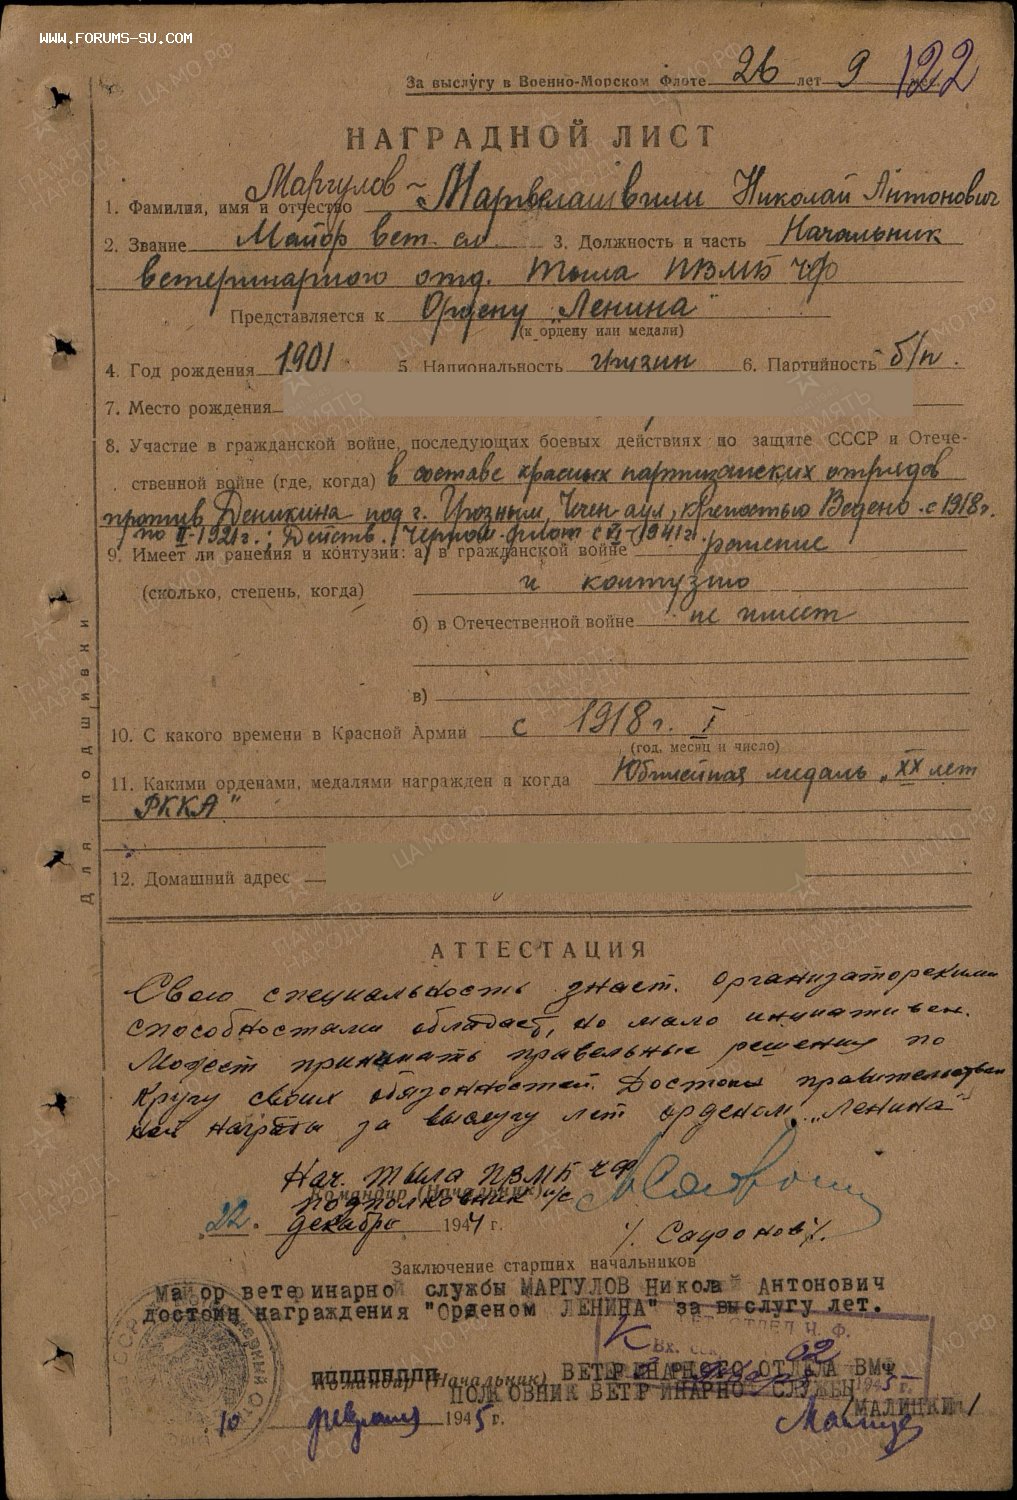 WWW.FORUMS-SU.COM
За выслугу в Военно-Морском Флоте 26 лет 9
122
НАГРАДНОЙ ЛИСТ
Маргулов ~
1. Фамилия, имя и отчество Марвелашвили Николай Антонович
2. Звание Майор вет. сл. 3. Должность и часть Начальник
ветеринарного отд. Тыла ПВМБ ЧФ
Представляется к Ордену „Ленина"
(к ордену или медали)
4. Год рождения 1901 5. Национальность грузин 6. Партийность б/п.
7. Место рождения
8. Участие в гражданской войне, последующих боевых действиях по защите СССР и Отече-
ственной войне (где, когда) в составе красных партизанских отрядов
против Деникина под г. Грозным, Чечен аул, крепостью Ведено. с 1918 г.
по II-1921 г.; Действ. Черном. флот с VI-1941 г.
9. Имеет ли ранения и контузии: а) в гражданской войне ранение
(сколько, степень, когда) и контузию
б) в Отечественной войне не имеет
в)
10. С какого времени в Красной Армии с 1918 г. I
(год, месяц и число)
11. Какими орденами, медалями награжден и когда Юбилейная медаль „XX лет
РККА"
12. Домашний адрес
Для подшивки
АТТЕСТАЦИЯ
Свою специальность знает. Организаторскими
способностями обладает, но мало инициативен.
Может принимать правельные решения по
кругу своих обязонностей. Достоин правительствен
ной награды за выслугу лет орденом „Ленина"
Нач. Тыла ПВМБ ЧФ
Командир (Начальник)
подполковник и/с
22. декабря 1944 г.
/. Сафонов/.
Заключение старших начальников
Майор ветеринарной службы МАРГУЛОВ Николай Антонович
достоин награждения "Орденом ЛЕНИНА" за выслугу лет.
ВЕТ. ОТДЕЛ Ч. Ф.
Вх. сек.
02
1945 г.
ВЕТЕРИНАРНОГО ОТДЕЛА ВМФ
Командир (Начальник)
ПОЛКОВНИК ВЕТЕРИНАРНОЙ СЛУЖБЫ
/МАЛИЦКИЙ/
10 февраля 1945 г.